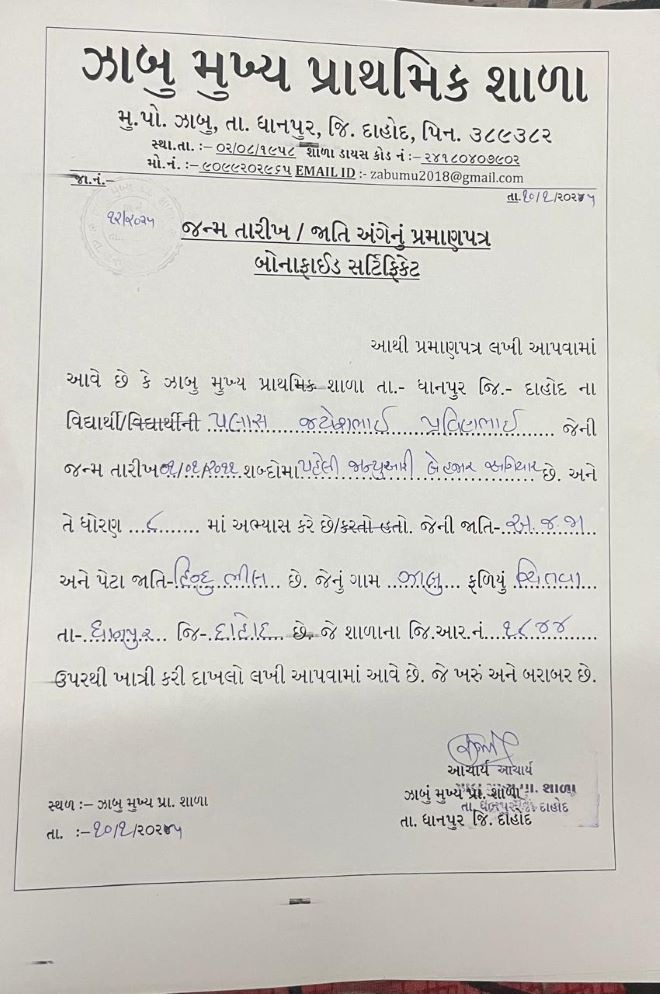 ઝાબુ મુખ્ય પ્રાથમિક શાળા
મુ.પો. ઝાબુ, તા. ધાનપુર, જિ. દાહોદ, પિન. ૩૮૯૩૮૨
સ્થા.તા. :– ૦૨/૦૮/૧૯૫૮ શાળા ડાયસ કોડ નં :–૨૪૧૮૦૪૦૭૯૦૨
મો.નં. :–૯૦૯૯૨૦૨૯૬૫ EMAIL ID :- zabumu2018@gmail.com
જા.નં.–
તા.૧૦/૧/૨૦૨૫
૧૨/૨૦૨૫
જન્મ તારીખ / જાતિ અંગેનું પ્રમાણપત્ર
બોનાફાઈડ સર્ટિફિકેટ
આથી પ્રમાણપત્ર લખી આપવામાં
આવે છે કે ઝાબુ મુખ્ય પ્રાથમિક શાળા તા.- ધાનપુર જિ.- દાહોદ ના
વિદ્યાર્થી/વિદ્યાર્થીની પલાસ જયેશભાઈ પ્રવિણભાઈ જેની
જન્મ તારીખ ૦૧/૦૧/૨૦૧૧ શબ્દોમાં પહેલી જાન્યુઆરી બેહજાર અગિયાર છે. અને
તે ધોરણ ૮ માં અભ્યાસ કરે છે/કરતો હતો. જેની જાતિ-અ.જ.જા
અને પેટા જાતિ-હિન્દુ ભીલ છે. જેનું ગામ ઝાબુ ફળિયું
તા-ધાનપુર જિ-દાહોદ છે. જે શાળાના જિ.આર.નં. ૧૮૪૪
ઉપરથી ખાત્રી કરી દાખલો લખી આપવામાં આવે છે. જે ખરું અને બરાબર છે.
આચાર્ય આચાર્ય
ઝાબું મુખ્ય પ્રા. શાળા પ્રા. શાળા
તા. દાહોદ
તા. ધાનપુર જિ. દાહોદ
સ્થળ :– ઝાબુ મુખ્ય પ્રા. શાળા
તા. :–૧૦/૧/૨૦૨૫